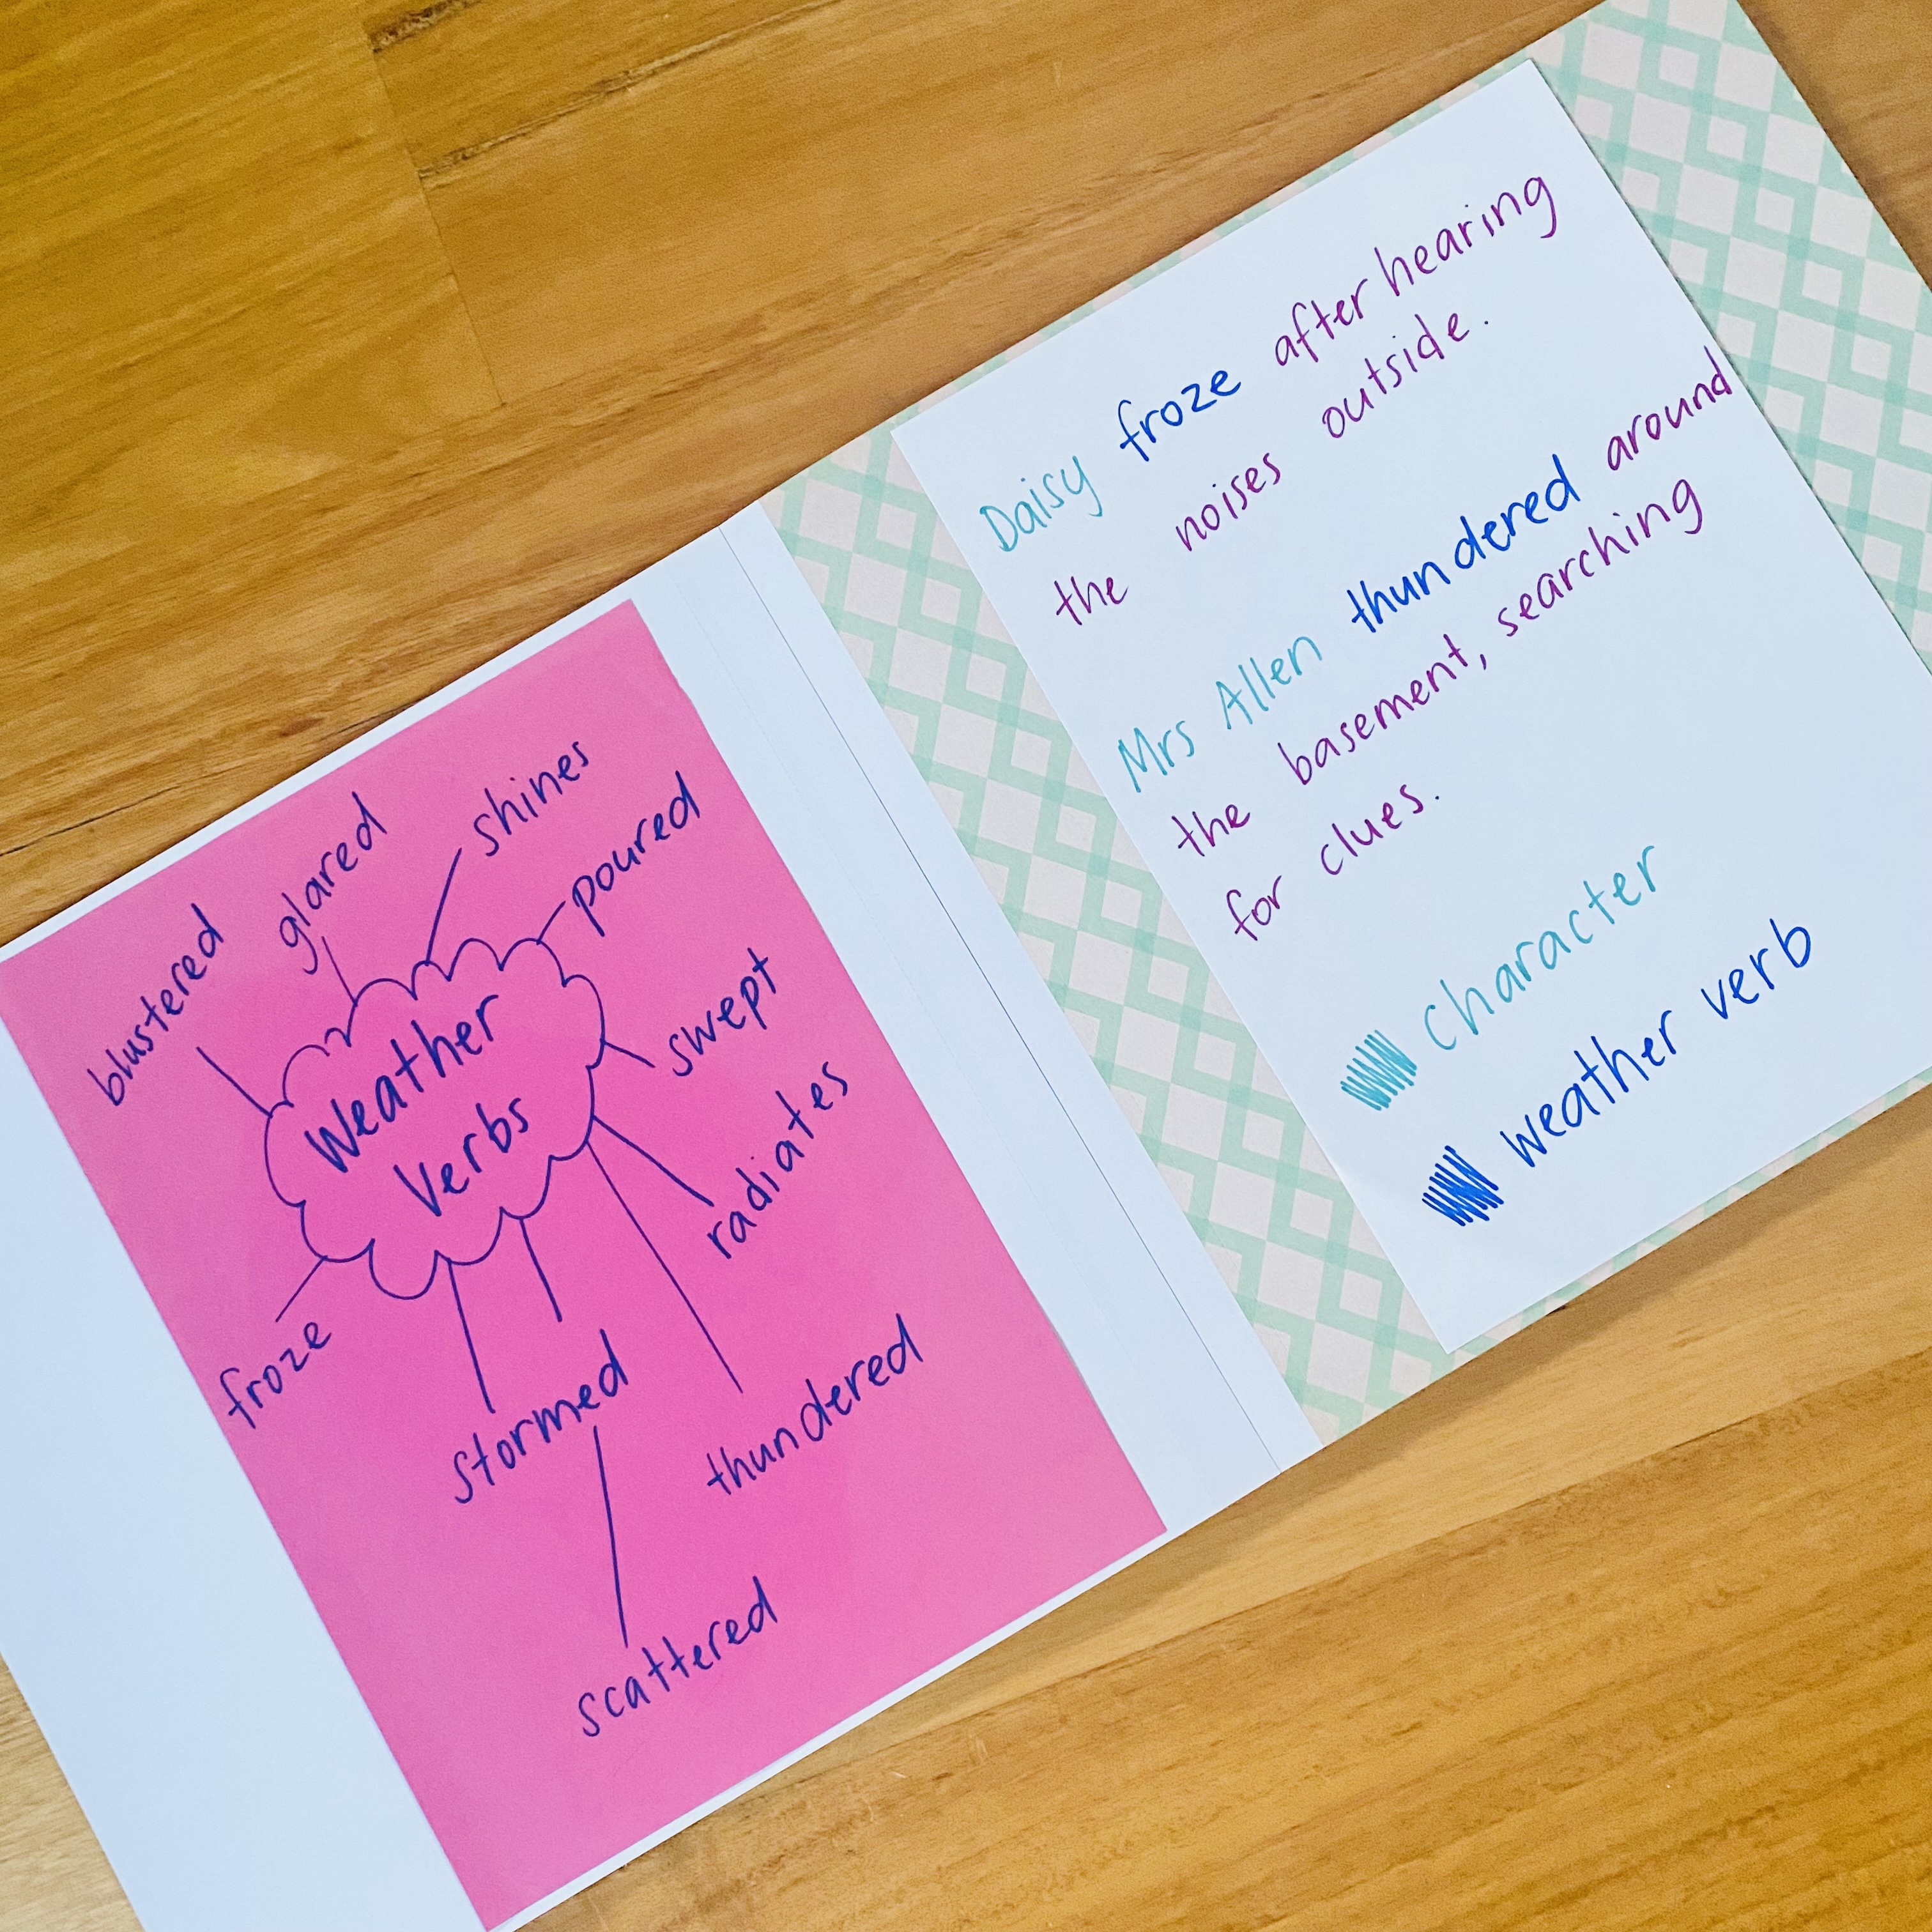 blustered
glared
shines
poured
swept
radiates
thundered
scattered
stormed
froze
Weather
Verbs
Daisy froze after hearing
the noises outside.
Mrs Allen thundered around
the basement, searching
for clues.
character
weather verb